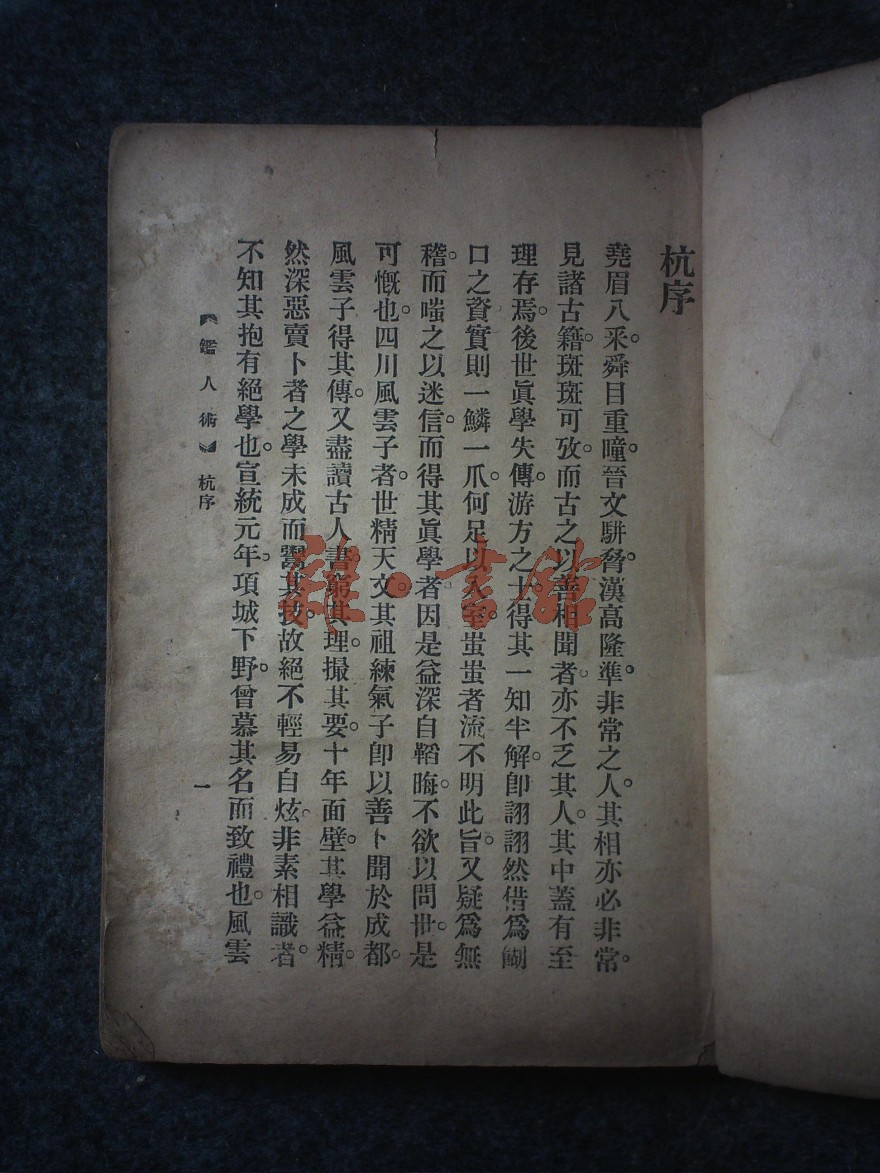 杭序
堯眉八釆。舜目重瞳。晉文駢脅。漢高隆準。非常之人。其相亦必非常。
見諸古籍。斑斑可攷。而古之以善相聞者。亦不乏其人。其中蓋有至
理存焉。後世眞學失傳。游方之士。得其一知半解。卽詡詡然借爲餬
口之資。實則一鱗一爪。何足以入室。蚩蚩者流。不明此旨。又疑爲無
稽。而嗤之以迷信。而得其眞學者。因是益深自韜晦。不欲以問世。是
可慨也。四川風雲子者。世精天文。其祖練氣子。卽以善卜聞於成都。
風雲子得其傳。又盡讀古人書。窮其理。撮其要。十年面壁。其學益精。
然深惡賣卜者之學未成而鬻其技。故絕不輕易自炫。非素相識者。
不知其抱有絕學也。宣統元年。項城下野。曾慕其名而致禮也。風雲
鑑人術 杭序 一
雜·書館